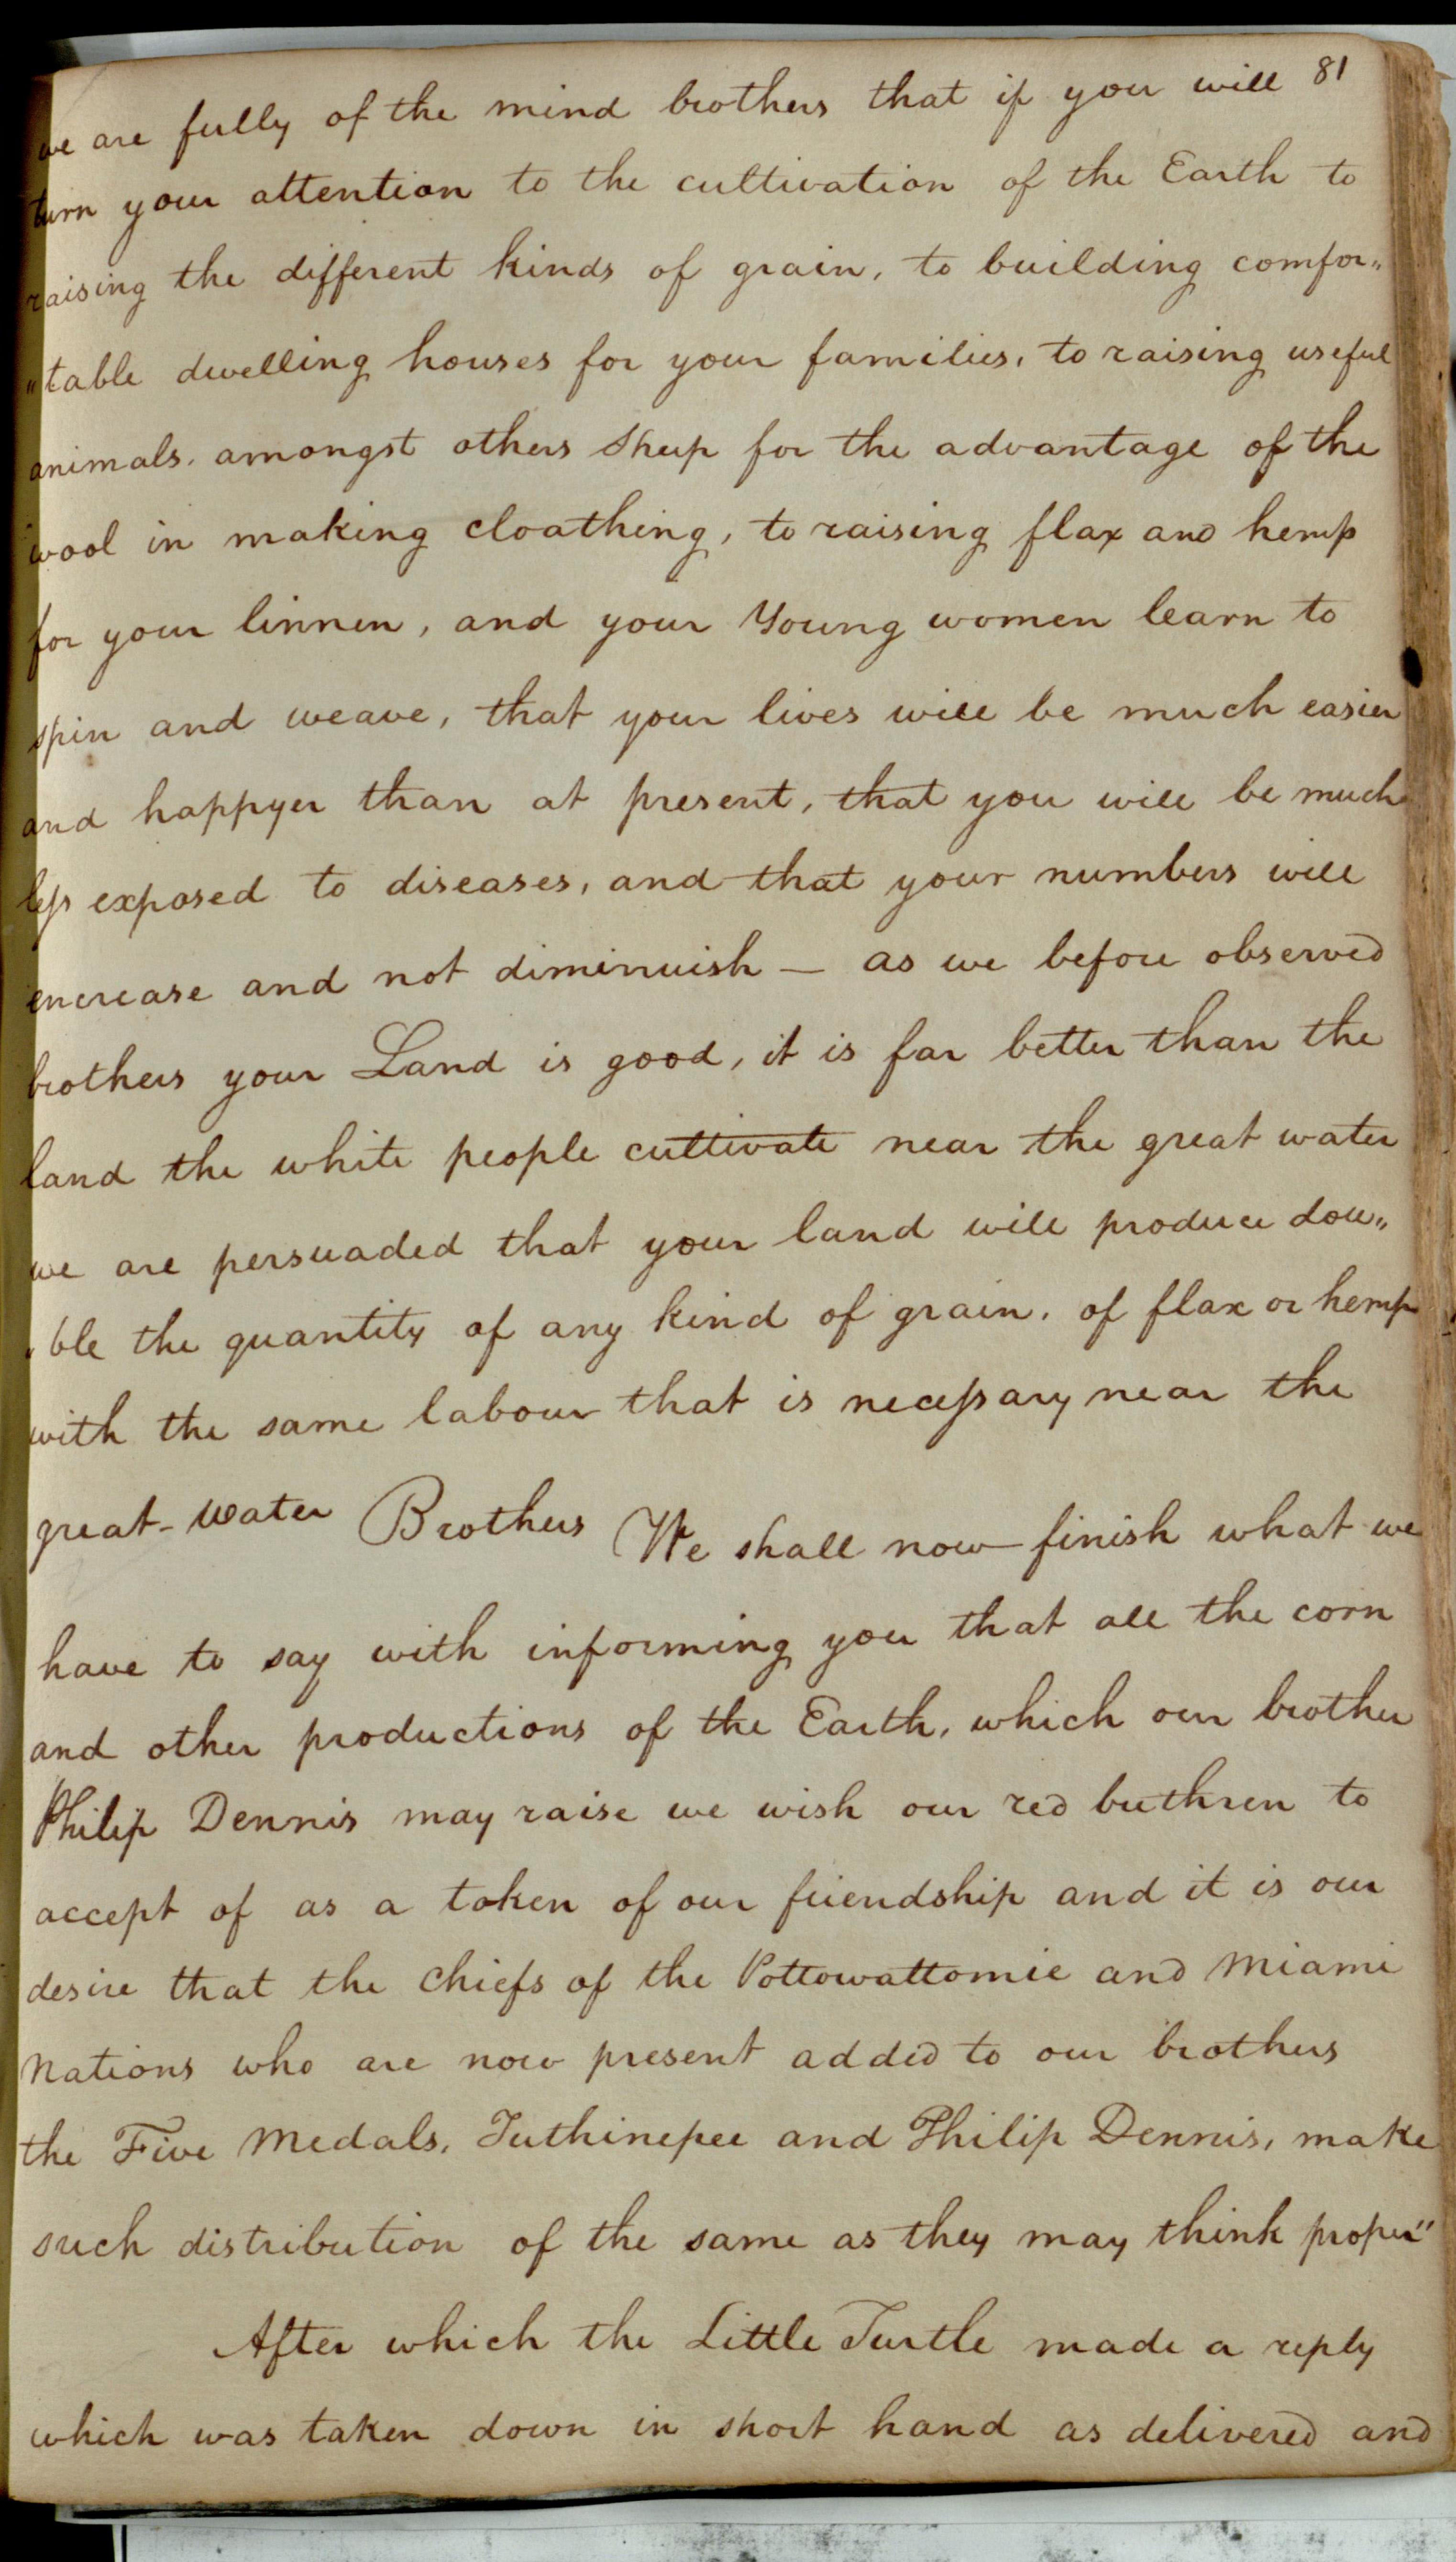 81
we are fully of the mind brothers that if you will
turn your attention to the cultivation of the Earth to
raising the different kinds of grain, to building comfor„
„table dwelling houses for your families, to raising useful
animals, amongst others Sheep for the advantage of the
wool in making cloathing, to raising flax and hemp
for your linnen, and your Young women learn to
spin and weave, that your lives will be much easier
and happyer than at present, that you will be much
less exposed to diseases, and that your numbers will
encrease and not diminuish — as we before observed
brothers your Land is good, it is far better than the
land the white people cultivate near the great water
we are persuaded that your land will produce dou„
„ble the quantity of any kind of grain, of flax or hemp
with the same labour that is necessary near the
great-water Brothers We shall now finish what we
have to say with informing you that all the corn
and other productions of the Earth, which our brother
Philip Dennis may raise we wish our red brethren to
accept of as a token of our friendship and it is our
desire that the Chiefs of the Pottowattomie and Miami
Nations who are now present added to our brothers
the Five Medals, Tuthinepee and Philip Dennis, make
such distribution of the same as they may think proper"
After which the Little Turtle made a reply
which was taken down in short hand as delivered and